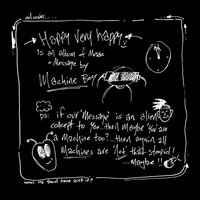 Happy very happy
is an album of Music
+ Message by
Machine Boy
ps: if our "message" is an alien
concept to you! then maybe you are
a machine too?.. then again all
Machines are Not that stupid!
...Maybe!!